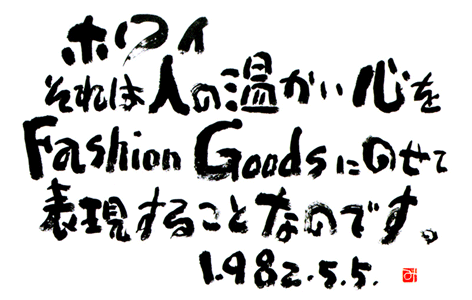 ホワイ
それは人の温かい心を
Fashion Goodsにのせて
表現することなのです。
1.982.5.5.
み